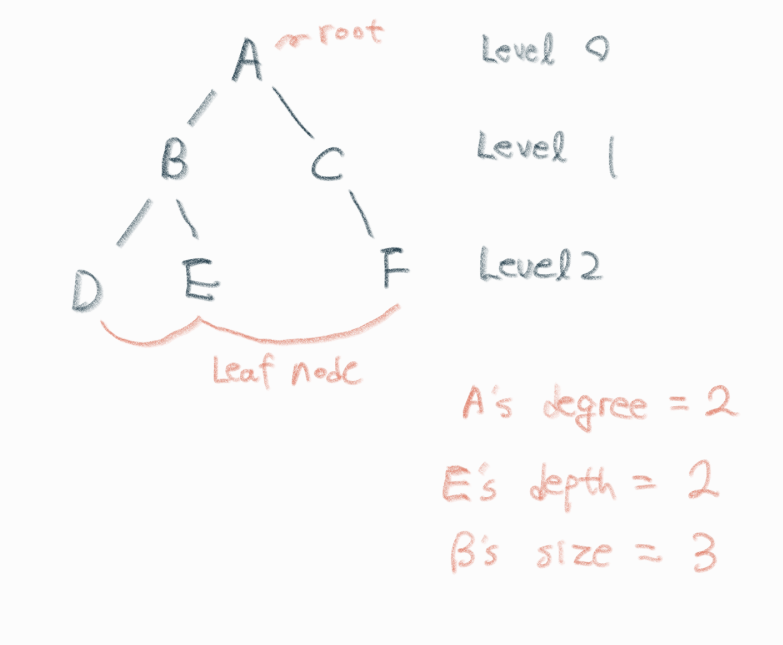 A root Level 0
B C Level 1
D E F Level 2
Leaf node
A's degree = 2
E's depth = 2
B's size = 3